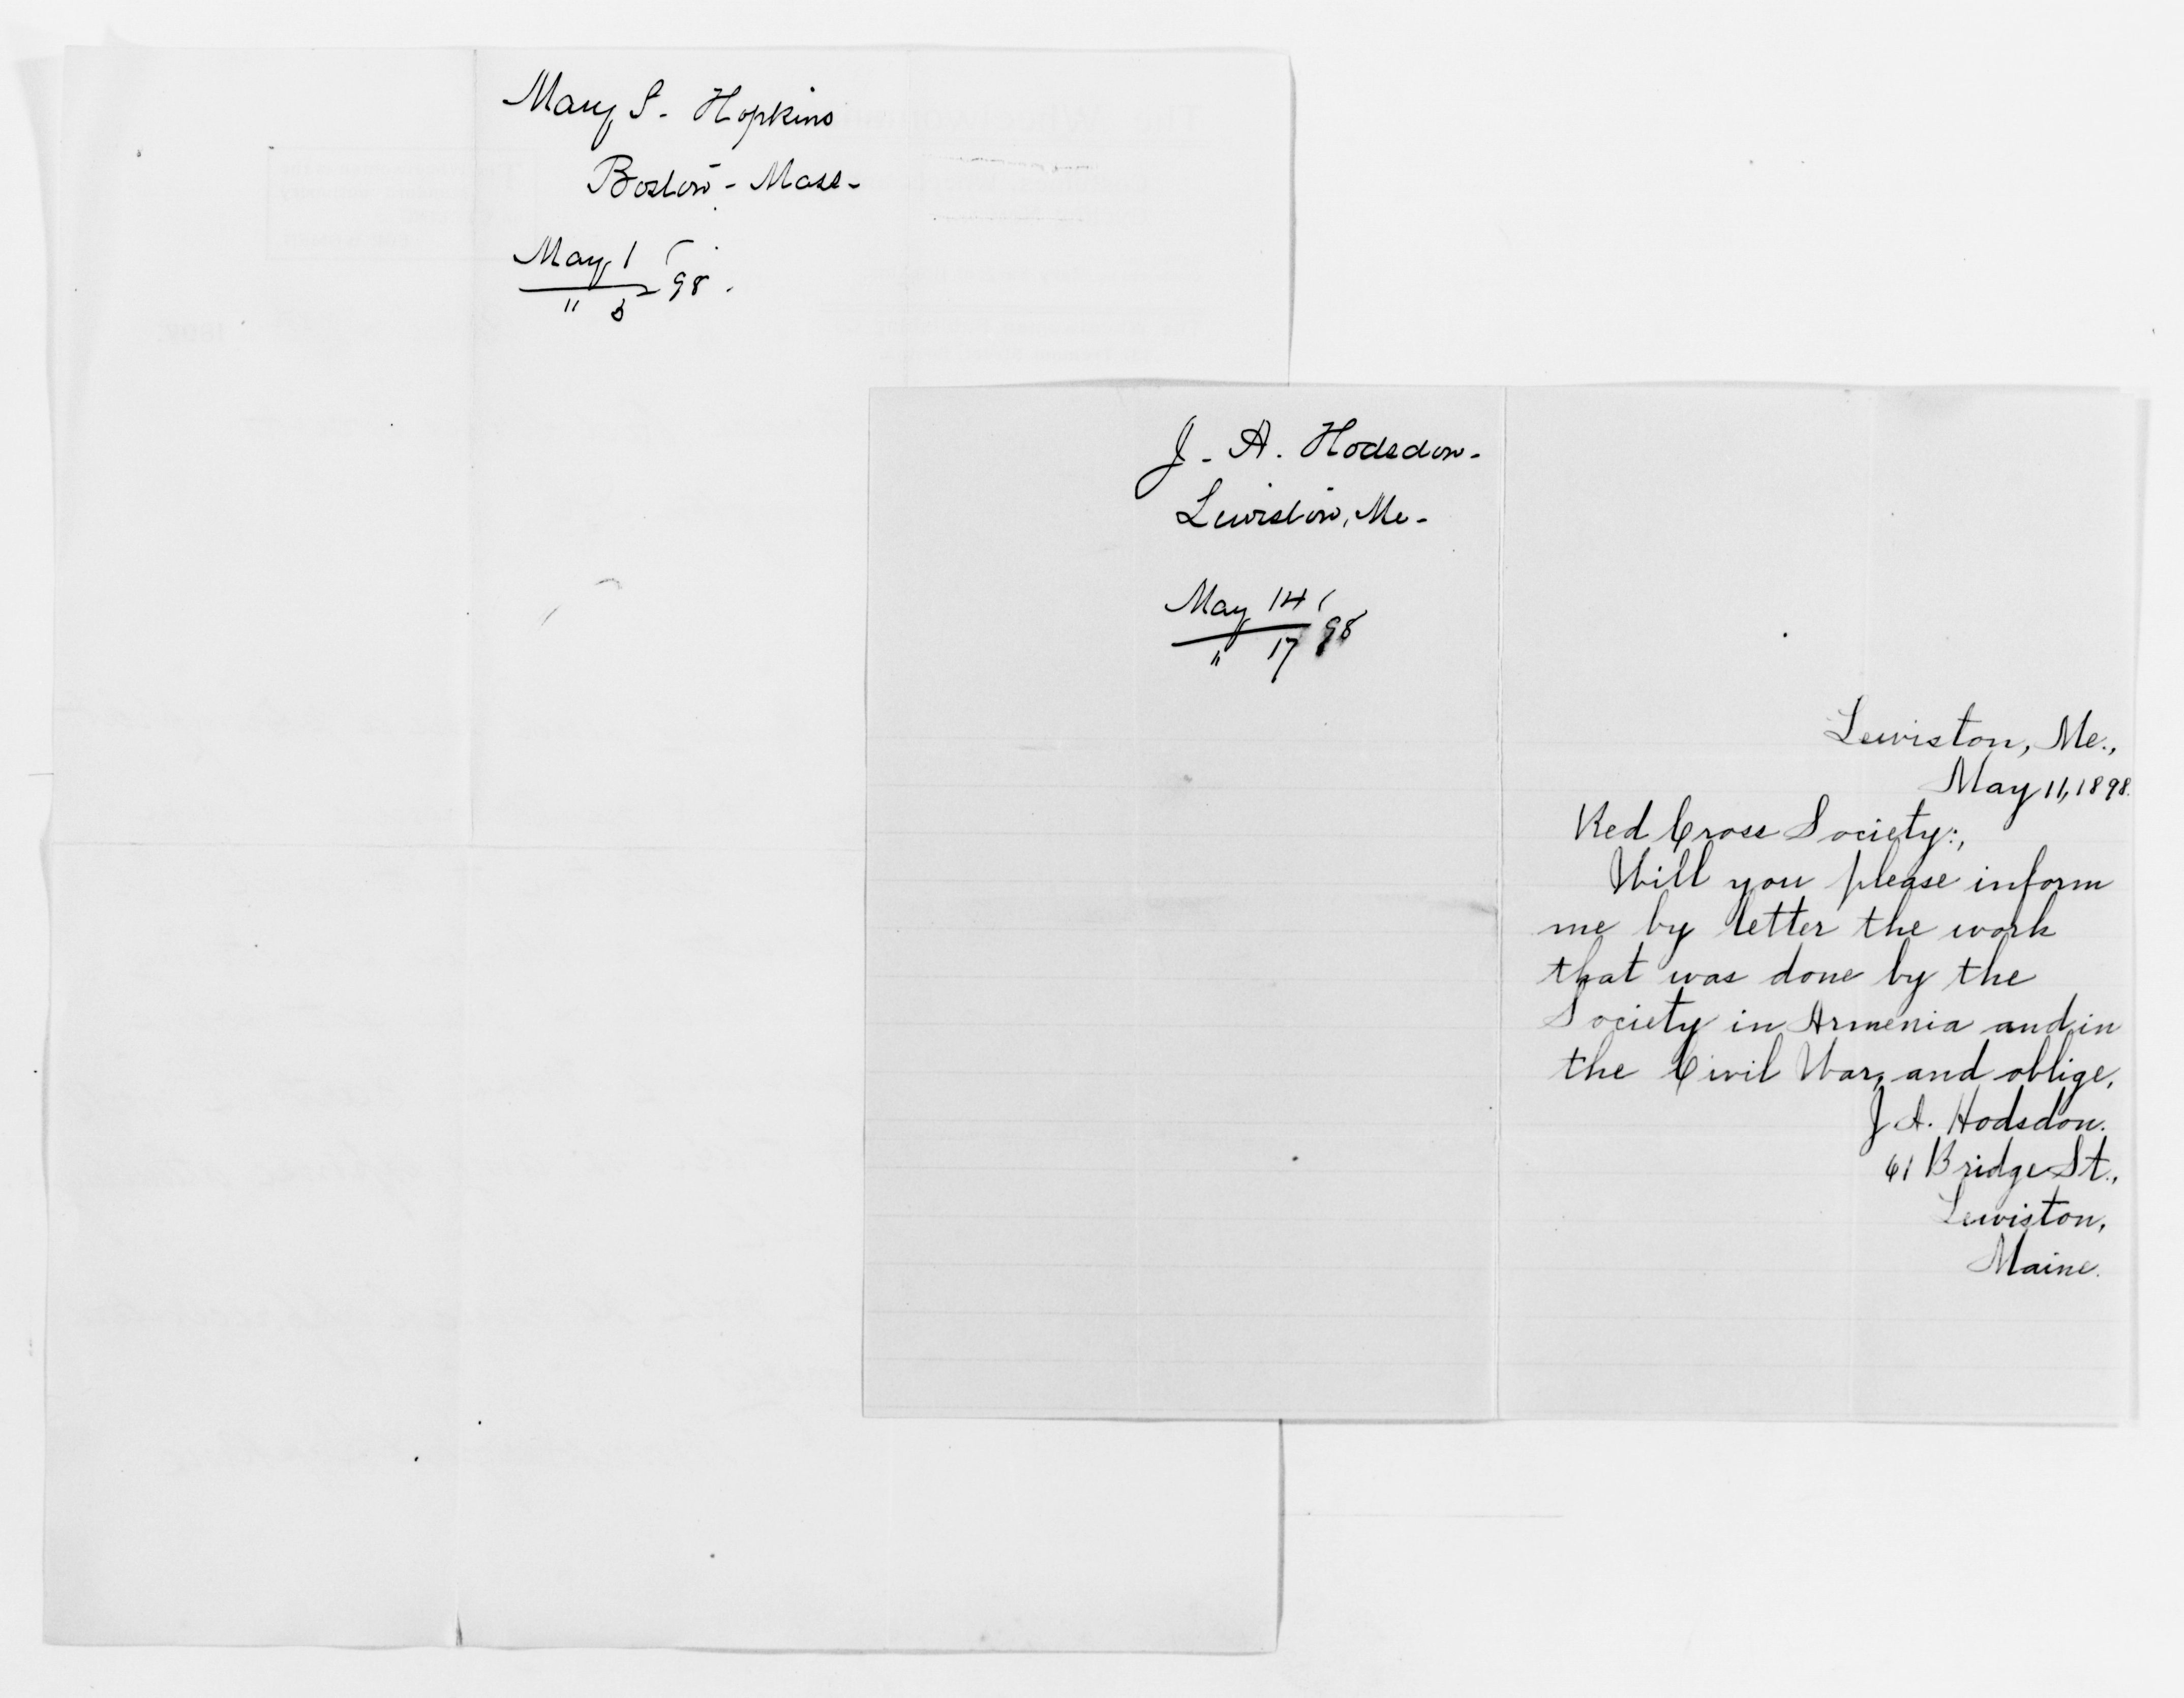 Mary S. Hopkins
Boston - Mass -
May 1
" 5 98.
J. A. Hodsdon -
Lewiston, Me -
May 14
" 17 98
Lewiston, Me.,
May 11, 1898.
Red Cross Society:,
Will you please inform
me by letter the work
that was done by the
Society in Armenia and in
the Civil War, and oblige,
J. A. Hodsdon.
61 Bridge St.,
Lewiston,
Maine.